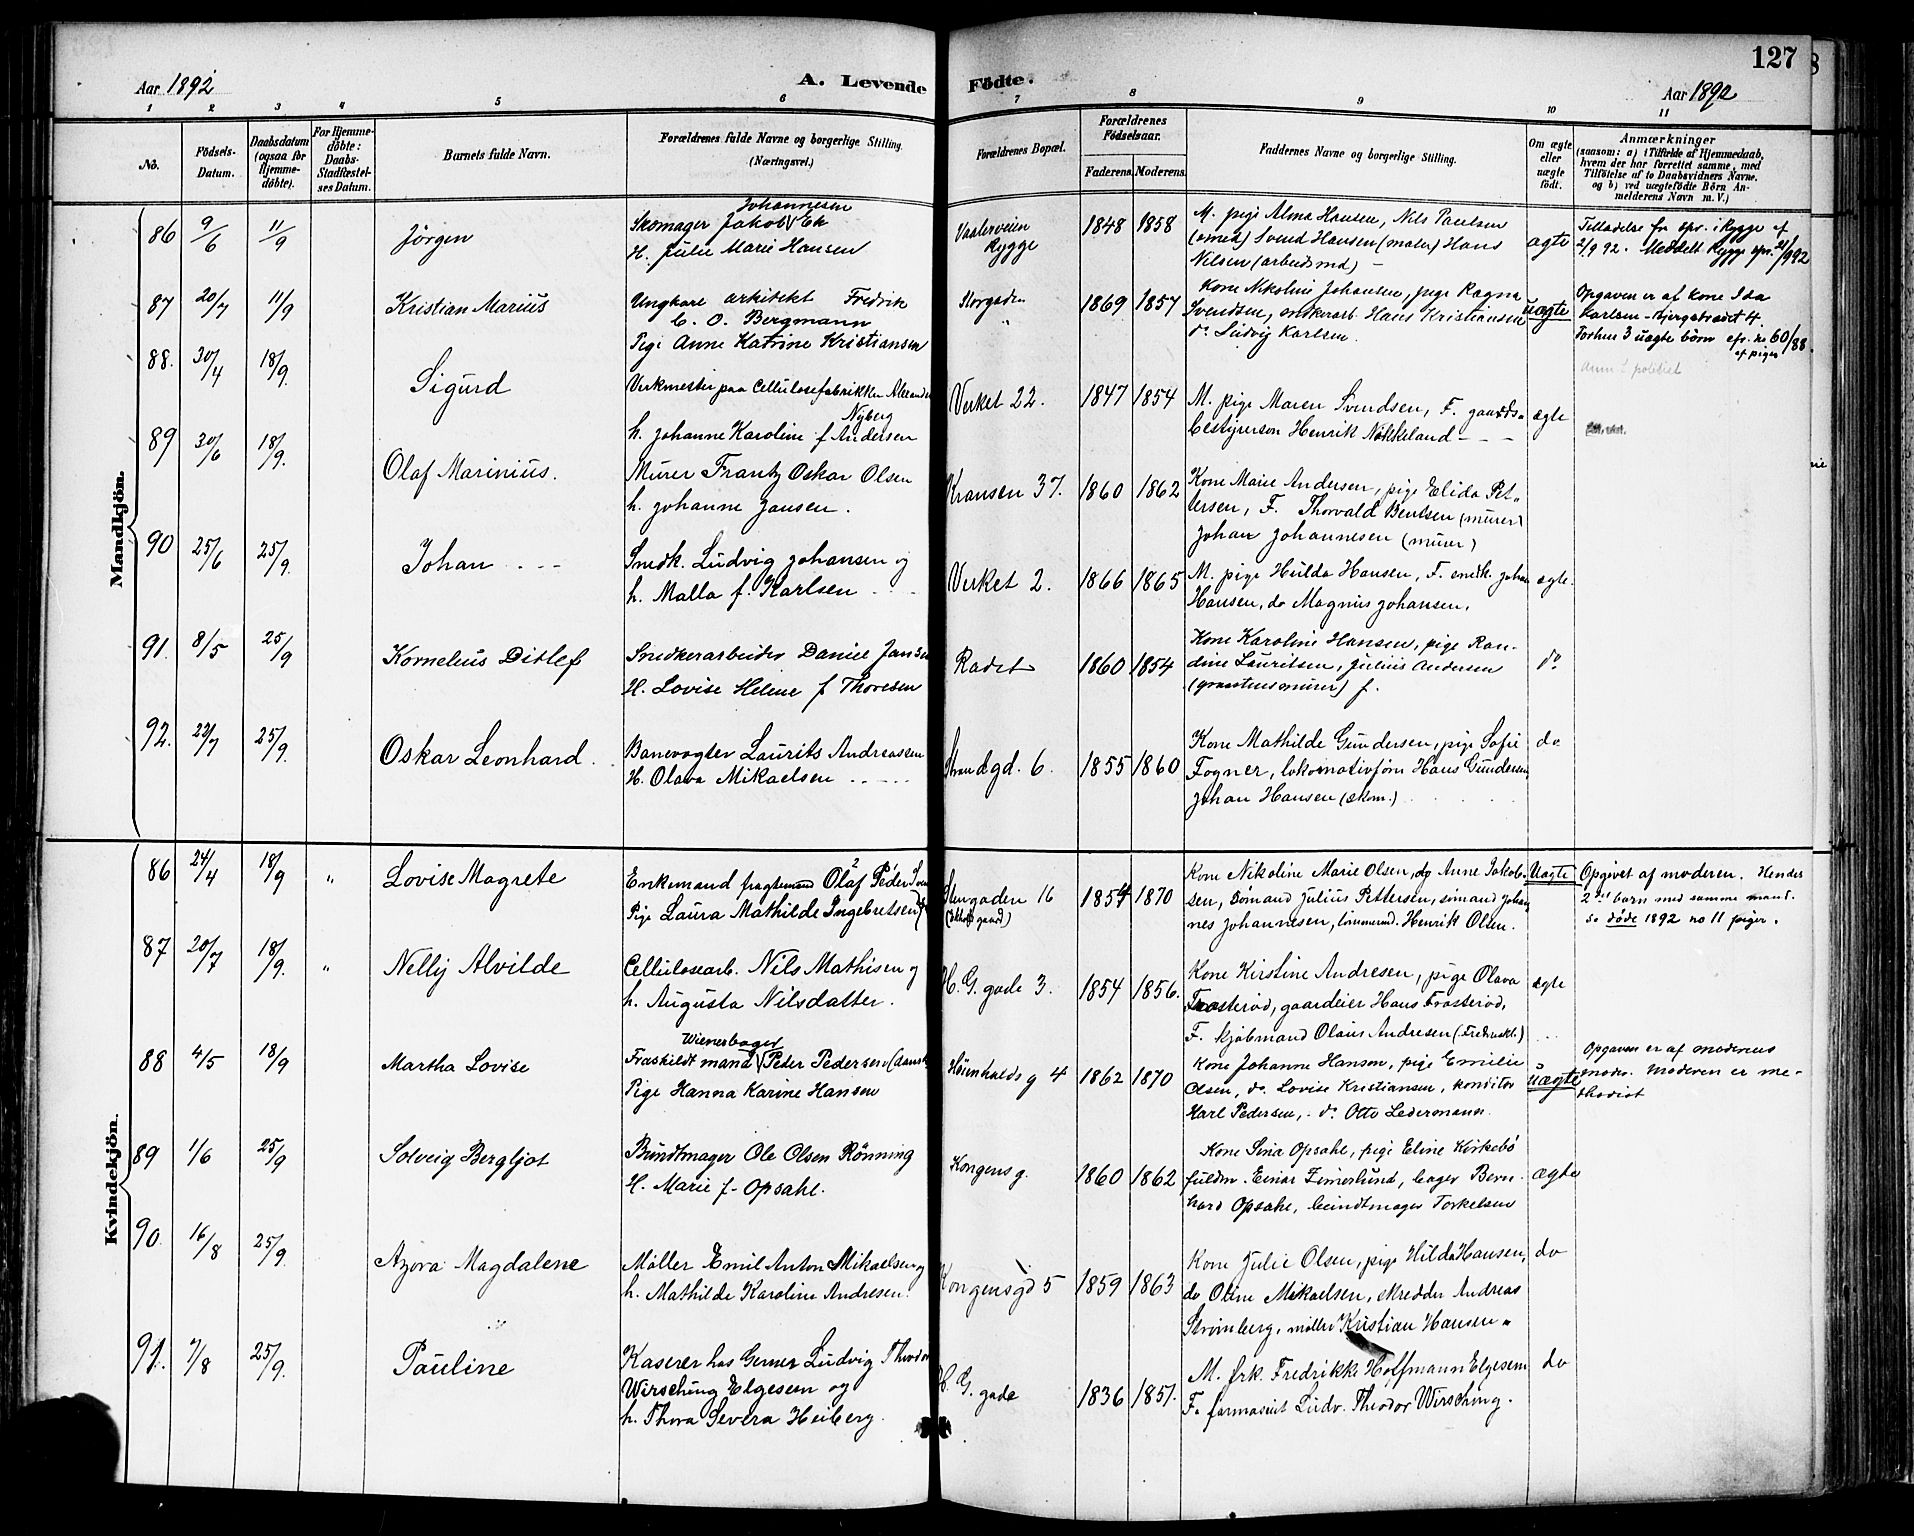 127
Aar 1892
A. Levende Fødte.
Aar 1892
1 2 3 4 5 6 7 8 9 10 11
No.
Födsels-Datum.
Daabsdatum (ogsaa for Hjemmedöbte).
For Hjemmedöbte: Daabs-Stadfæstelses Datum.
Barnets fulde Navn.
Forældrenes fulde Navne og borgerlige Stilling. (Næringsvei.)
Forældrenes Bopæl.
Forældrenes Födselsaar.
Faderens. Moderens.
Faddernes Navne og borgerlige Stilling.
Om ægte eller uægte födt.
Anmærkninger
(saasom: a) i Tilfælde af Hjemmedaab, hvem der har forrettet samme, med Tilföielse af to Daabsvidners Navne, og b) ved uægtefödte Börn Anmelderens Navn m. V.)
Mandkjön.
86 9/6 11/9 Jörgen
Skomager Jakob Johannesen Ek
H. Julie Marie Hansen
Vaalerveien Rygge
1848 1858
M. pige Alma Hansen, Nils Paulsen
(smed) Svend Hansen (maler) Hans
Nilsen (arbeidsmd) –
ægte
Tilladelse fra spr. i Rygge af
2/9 92. Meddelt Rygge spr. 21/9 92
87 20/7 11/9 Kristian Marius
Ungkare arkitekt Fredrik
C. O. Bergmann
Pige Anne Katrine Kristiansen
Storgaden
1869 1857
Kone Nikoline Johansen, pige Ragna
Svendsen, snekerarb. Hans Kristiansen
do Ludvig Karlsen.
uægte
Opgaven er af kone Ida
Karlsen - Bjergstrædet 4.
Forhen 3 uægte börn cfr. no 60/88
af piger
88. 30/4 18/9. Sigurd
Verkmester paa Cellulosefabrikken Alexander
Nyberg
h. Johanne Karoline f Andersen
Verket 22.
1847 1854
M. pige Maren Svendsen, F. gaards-
bestyrerson Henrik Nökkeland – – –
ægte
89 30/6 18/9. Olaf Marinius.
Murer Frantz Oskar Olsen
h. Johanne Jansen.
Kransen 37.
1860 1862
Kone Marie Andersen, pige Elida Pet-
tersen, F. Thorvald Bentsen (murer)
Johan Johannesen (murer)
90 25/6 25/9. Johan . - -
Snedk. Ludvig Johansen og
h. Malla f. Karlsen
Verket 2.
1866 1865
M. pige Hulda Hansen, F. snedk. Johan
Hansen, do Magnus Johansen.
ægte.
91. 8/5 25/9 Kornelius Ditlef
Snedkerarbeider Daniel Jansen
H. Lovise Helene f Thoresen
Radet
1860 1854
Kone Karoline Hansen, pige Ran-
dine Lauritsen, Julius Andersen
(graastensmurer) f.
do
92. 22/7 25/9. Oskar Leonhard.
Banevogter Laurits Andreassen
H. Olava Mikaelsen
Strandgd. 6.
1855 1860
Kone Mathilde Gundersen, pige Sofie
Fogner, lokomotivförer Hans Gundersen
Johan Hansen (skom.)
do
Kvindekjön.
86 24/4 18/9 " Lovise Magrete
Enkemand fragtemand Olaf Peder
Pige Laura Mathilde Ingebretsen
Stengaden 16
1854 1870
Kone Nikoline Marie Olsen, do Anne Jakob-
sen, sömand Julius Pettersen, sömand Johan-
nes Johannesen, tömmermd. Henrik Olsen.
Uægte
Opgivet af moderen. Hendes
2det barn med samme mand.
se döde 1892 no 11 piger.
87 20/7 18/9. " Nelly Alvilde
Cellulosearb. Nils Mathisen og
h. Augusta Nilsdatter.
H. G. gade 3.
1854 1856.
Kone Kirstine Andresen, pige Olava
Frosteröd, gaardeier Hans Frosteröd,
F. kjöbmand Olaus Andresen (Fredrikst.)
ægte
88 4/5 18/9 Martha Lovise
Wienerbager
Fraskildt mand Peder Pedersen (dansk)
Pige Hanna Karine Hansen
g 4
1862 1870
Kone Johanne Hansen, pige Emilie
Olsen, do. Lovise Kristiansen, konditor
Karl Pedersen, do Otto Ledermann.
uægte
Opgaven er af moderens
moder. Moderen er me-
thodist
89 1/6 25/9 Solveig Bergljot
Bundtmager Ole Olsen Rönning
H. Marie f. Opsahl.
Kongensg.
1860 1862
Kone Sina Opsahl, pige Eline Kirkebö
fuldm. Einar Zimerlund, bager Bern-
hard Opsahl, bundtmager Torkelsen
ægte
90. 16/8 25/9. Azora Magdalene
Møller Emil Anton Mikaelsen og
h. Mathilde Karoline Andresen.
Kongensgd 5
1859 1863
Kone Julie Olsen, pige Hilda Hansen,
do Oline Mikaelsen, skredder Andreas
Strömberg, møller Kristian Hansen "
do
91. 7/8 25/9. Pauline
Kaserer hos Gerner Ludvig Theodor
Wirsching Elgesem og
h. Thora Severa Heiberg.
H. G. gade
1836 1851.
M. frk. Fredrikke Hoffmann Elgesem
F. farmaceut Ludv. Theodor Wirsching.
do